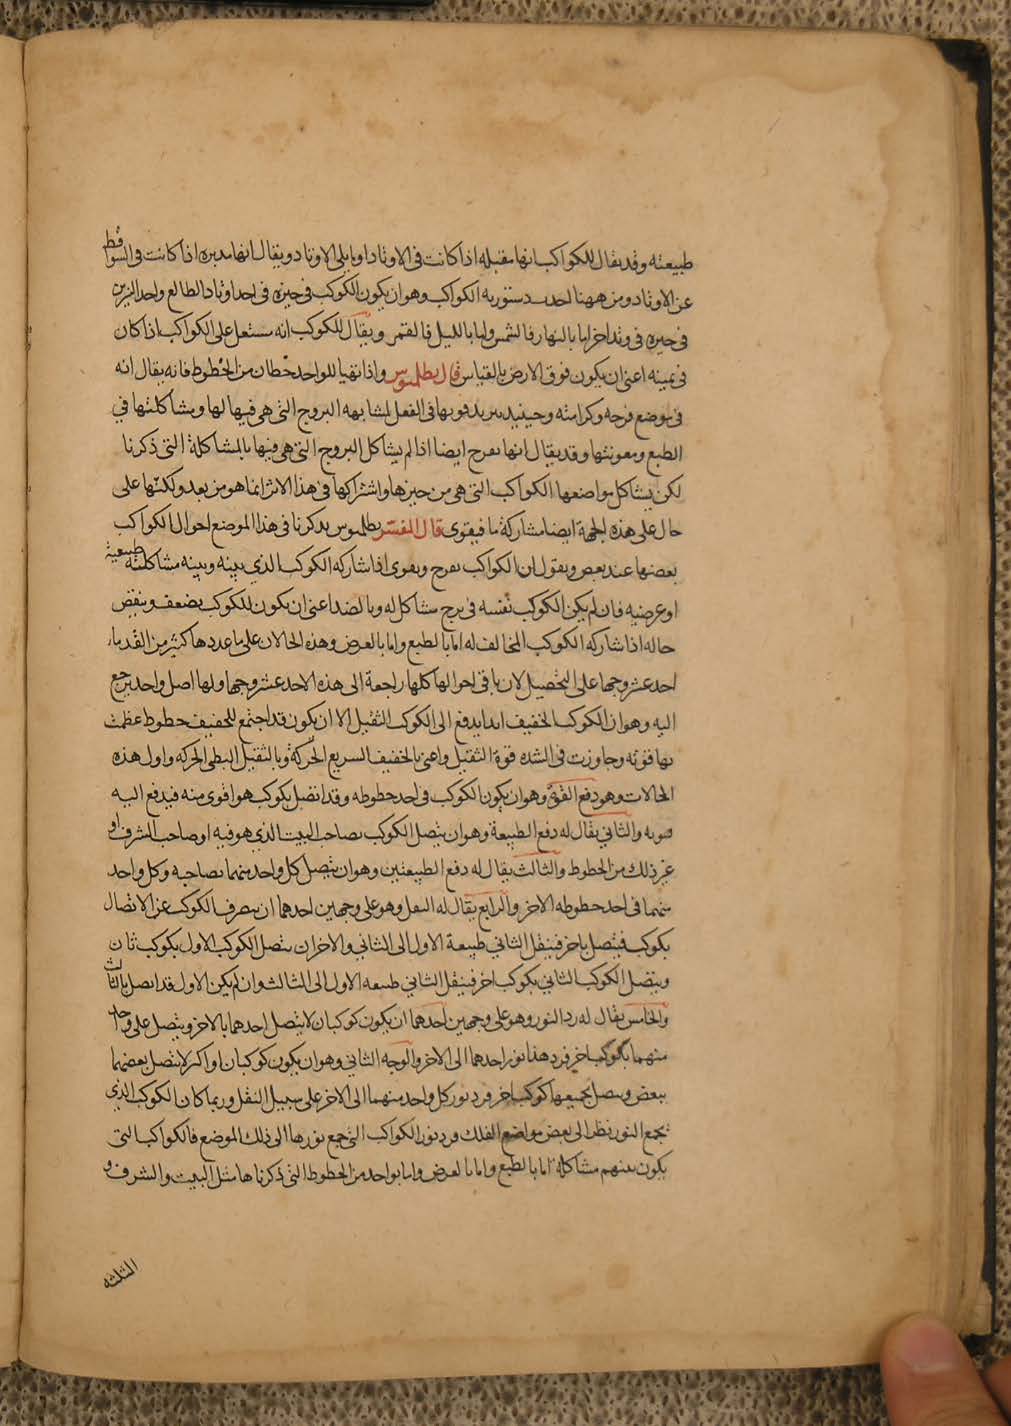 طبيعته وقد يقال للكواكب انها مقبله اذا كانت فى الاوتاد او ما يلى الاوتاد ويقال انها مدبره اذا كانت فى السواقط
عن الاوتاد ومن ههنا احدث دستوريه الكواكب وهو ان يكون الكوكب فى حيزه فى احد اوتاد الطالع واحد النيرين
فى حيزه فى وتد اخر اما بالنهار فالشمس واما بالليل فالقمر ويقال للكوكب انه مستعل على الكواكب اذا كان
فى يمينه اعنى ان يكون فوق الارض بالقياس قال بطلميوس واذا تهيا للواحد خطان من الخطوط فانه يقال انه
فى موضع فرحه وكرامته وحينيد يزيد قوتها فى الفعل لمشابهه البروج التى هى فيها لها ومشاكلتها فى
الطبع ومعونتها وقد يقال انها تفرح ايضا اذا لم يشاكل البروج التى هى فيها بالمشاكلة التى ذكرنا
لكن يشاكل مواضعها الكواكب التى هى من حيزها واشتراكها فى هذا الاثر انما هو من بعد ولكنها على
حال على هذه الجهة ايضا مشاركة ما فيقوى قال المفسر بطلميوس يذكرنا فى هذا الموضع احوال الكواكب
بعضها عند بعض ويقول ان الكواكب تفرح وتقوى اذا شاركه الكوكب الذي بينه وبينه مشاكلة طبيعية
او عرضيه فان لم يكن الكوكب نفسه فى برج مشاكل له وبالضد اعنى ان يكون للكوكب يضعف وينقص
حاله اذا شاركه الكوكب المخالف له اما بالطبع واما بالعرض وهذه الحالات على ما عددها كثير من القدماء
احد عشر وجها على التحصيل لان باقى احوالها كلها راجعة الى هذه الاحد عشر وجها ولها اصل واحد يرجع
اليه وهو ان الكوكب الخفيف ابدا يدفع الى الكوكب الثقيل الا ان يكون قد اجتمع للخفيف حظوظ عظمت
بها قوته وجاوزت فى الشده قوة الثقيل واعنى بالخفيف السريع الحركة وبالثقيل البطى الحركه واول هذه
الحالات وهو دفع القوة وهو ان يكون الكوكب فى احد حظوظه وقد اتصل بكوكب هو اقوى منه فيدفع اليه
قوته والثاني يقال له دفع الطبيعة وهو ان يتصل الكوكب بصاحب البيت الذي هو فيه او صاحب الشرف او
غير ذلك من الحظوظ والثالث يقال له دفع الطبيعتين وهو ان يتصل كل واحد منهما بصاحبه وكل واحد
منهما فى احد حظوظه الاخر والرابع يقال له النقل وهو على وجهين احدهما ان ينصرف الكوكب عن الاتصال
بكوكب فيتصل باخر فينقل الثاني طبيعة الاول الى الثاني والاخر ان يتصل الكوكب الاول بكوكب ثان
ويتصل الكوكب الثاني بكوكب اخر فينقل الثاني طبيعه الاول الى الثالث وان لم يكن الاول قد اتصل بالثالث
والخامس يقال له رد النور وهو على وجهين احدهما ان يكون كوكبان لا يتصل احدهما بالاخر ويتصل كل واحد
منهما بكوكب اخر فرد هذا نور احدهما الى الاخر والوجه الثاني وهو ان يكون كوكبان او اكثر لا يتصل بعضهما
ببعض ويتصل بجميعها كوكب اخر فرد نور كل واحد منهما الى الاخر على سبيل النقل وربما كان الكوكب الذي
يجمع النور ينظر الى بعض مواضع الفلك ورد نور الكواكب التى جمع نورها الى ذلك الموضع فالكواكب التى
يكون بينهم مشاكله اما بالطبع واما بالعرض واما بواحد من الحظوظ التى ذكرناها مثل البيت والشرف و
المثلثه